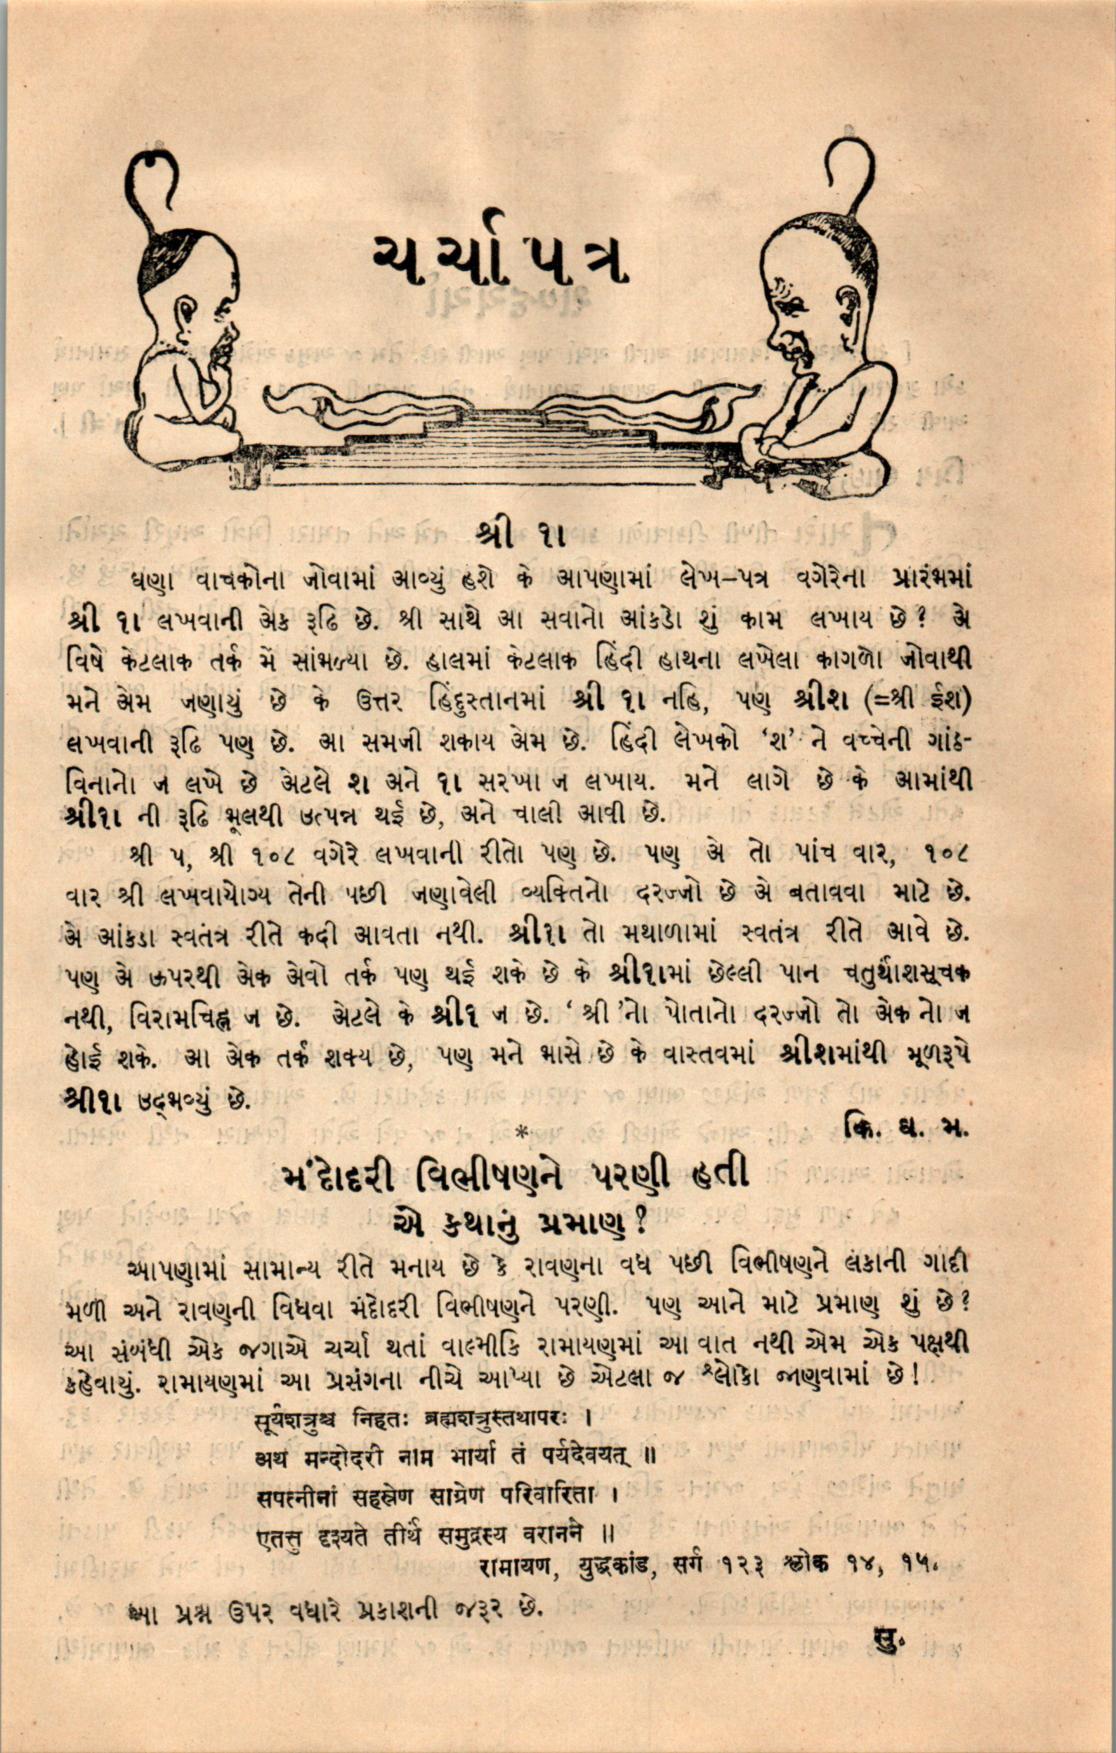 ચર્ચાપત્ર
શ્રી ૧ા
ઘણા વાચકોના જોવામાં આવ્યું હશે કે આપણામાં લેખ–પત્ર વગેરેના પ્રારંભમાં
શ્રી ૧ા લખવાની એક રૂઢિ છે. શ્રી સાથે આ સવાનો આંકડો શું કામ લખાય છે? એ
વિષે કેટલાક તર્ક મેં સાંભળ્યા છે. હાલમાં કેટલાક હિંદી હાથના લખેલા કાગળો જોવાથી
મને એમ જણાયું છે કે ઉત્તર હિંદુસ્તાનમાં શ્રી ૧ા નહિ, પણ શ્રીશ (=શ્રી ઈશ)
લખવાની રૂઢિ પણ છે. આ સમજી શકાય એમ છે. હિંદી લેખકો ‘શ’ ને વચ્ચેની ગાંઠ-
વિનાનો જ લખે છે એટલે શ અને ૧ા સરખા જ લખાય. મને લાગે છે કે આમાંથી
શ્રી૧ા ની રૂઢિ ભૂલથી ઉત્પન્ન થઈ છે, અને ચાલી આવી છે.
શ્રી ૫, શ્રી ૧૦૮ વગેરે લખવાની રીતો પણ છે. પણ એ તો પાંચ વાર, ૧૦૮
વાર શ્રી લખવાયોગ્ય તેની પછી જણાવેલી વ્યક્તિનો દરજ્જો છે એ બતાવવા માટે છે.
એ આંકડા સ્વતંત્ર રીતે કદી આવતા નથી. શ્રી૧ા તો મથાળામાં સ્વતંત્ર રીતે આવે છે.
પણ એ ઉપરથી એક એવો તર્ક પણ થઈ શકે છે કે શ્રી૧ામાં છેલ્લી પાન ચતુર્થાંશસૂચક
નથી, વિરામચિહ્ન જ છે. એટલે કે શ્રી૧ જ છે. ‘શ્રી’નો પોતાનો દરજ્જો તો એક નો જ
હોઈ શકે. આ એક તર્ક શક્ય છે, પણ મને ભાસે છે કે વાસ્તવમાં શ્રીશમાંથી મૂળરૂપે
શ્રી૧ા ઉદ્ભવ્યું છે.
કિ. ઘ. મ.
*
મંદોદરી વિભીષણને પરણી હતી
એ કથાનું પ્રમાણ?
આપણામાં સામાન્ય રીતે મનાય છે કે રાવણના વધ પછી વિભીષણને લંકાની ગાદી
મળી અને રાવણની વિધવા મંદોદરી વિભીષણને પરણી. પણ આને માટે પ્રમાણ શું છે?
આ સંબંધી એક જગાએ ચર્ચા થતાં વાલ્મીકિ રામાયણમાં આ વાત નથી એમ એક પક્ષથી
કહેવાયું. રામાયણમાં આ પ્રસંગના નીચે આપ્યા છે એટલા જ શ્લોકો જાણવામાં છે!
सूर्यशत्रुश्च निहतः ब्रह्मशत्रुस्तथापरः ।
अथ मन्दोदरी नाम भार्या तं पर्यदेवयत् ॥
सपत्नीनां सहस्रेण साग्रेण परिवारिता ।
एतत्तु दृश्यते तीर्थं समुद्रस्य वरानने ॥
રામાયણ, યુદ્ધકાંડ, સર્ગ ૧૨૩ શ્લોક ૧૪, ૧૫.
આ પ્રશ્ન ઉપર વધારે પ્રકાશની જરૂર છે.
સુ.